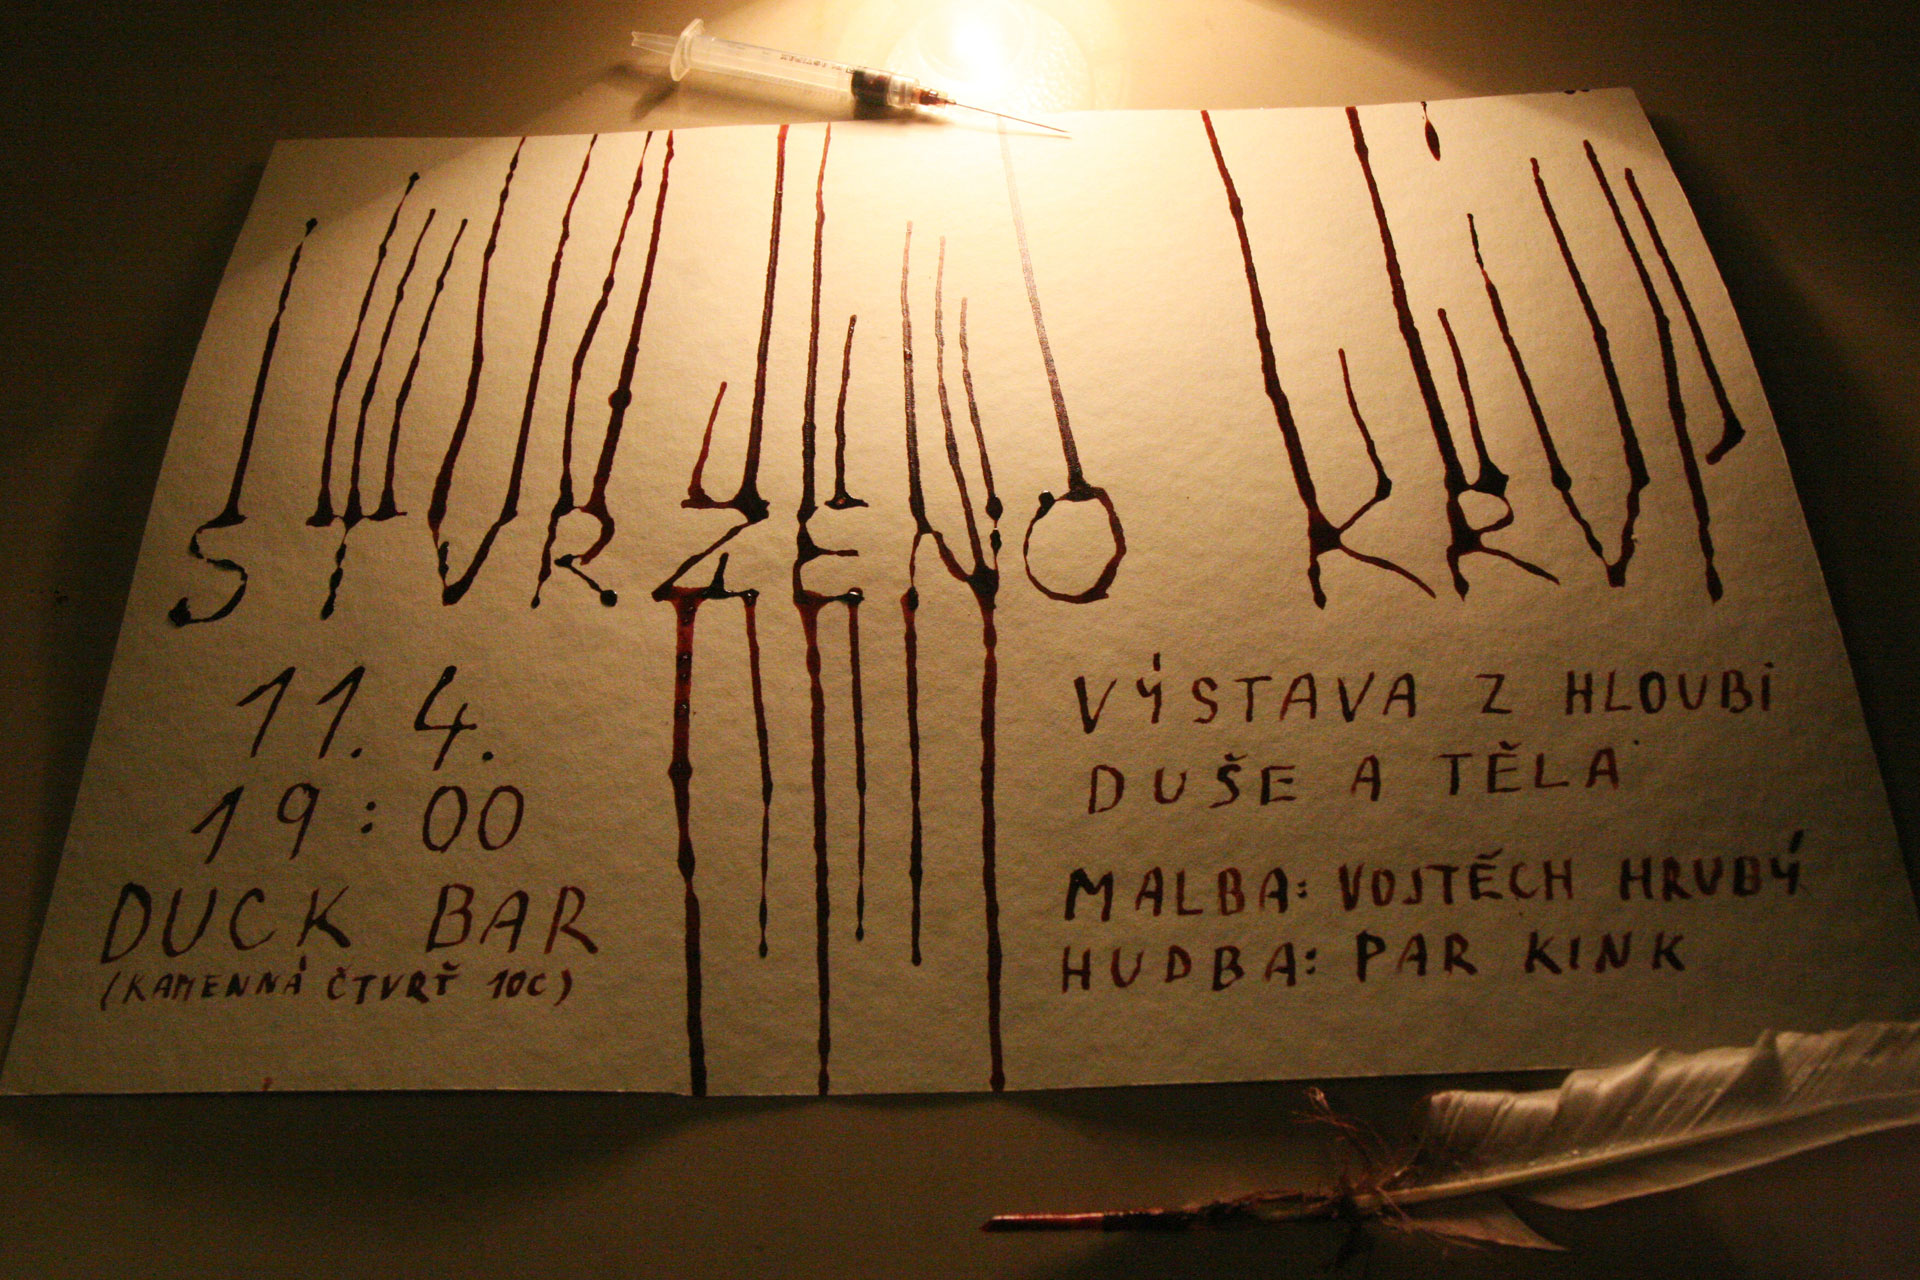 STVRZENO KRVÍ
11. 4.
19:00
DUCK BAR
(KAMENNÁ ČTVRŤ 10C)
VÝSTAVA Z HLOUBI
DUŠE A TĚLA
MALBA: VOJTĚCH HRUBÝ
HUDBA: PAR KINK